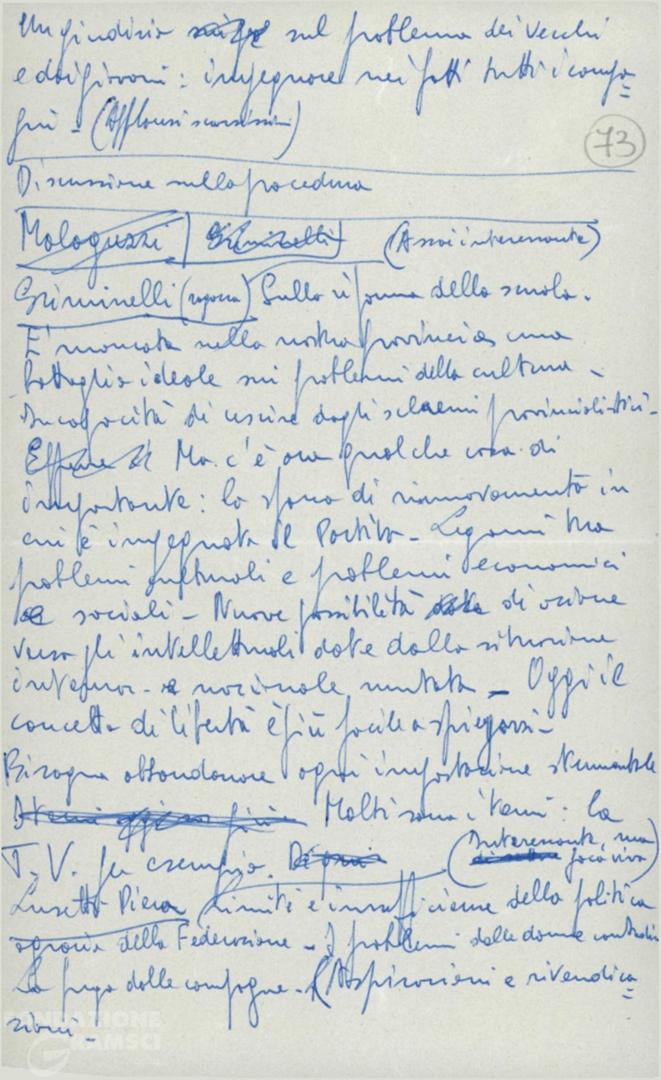 Un giudizio sul problema dei vecchi
e dei giovani: impegnare nei fatti tutti i compa=
gni - (Applausi scarsissimi)
73
Discussione sulla procedura
Malaguzzi Griminelli (Assai interessante)
Griminelli (ragazza) Sulla riforma della scuola.
E' mancata nella nostra provincia una
battaglia ideale sui problemi della cultura -
Incapacità di uscire dagli schemi provincialistici -
Ma c'è ora qualche cosa di
importante: lo sforzo di rinnovamento in
cui è impegnato il Partito - Legami tra
problemi culturali e problemi economici
e sociali - Nuove possibilità di azione
verso gli intellettuali date dalla situazione
internaz. e nazionale mutata - Oggi il
concetto di libertà è più facile a spiegarsi -
Bisogna abbandonare ogni impostazione strumentale
Molti sono i temi: la
T.V. per esempio. (Interessante, ma
poco viva)
Lusetti Piera Limiti e insufficienze della politica
agraria della Federazione - I problemi delle donne contadine
La fuga dalle campagne - (Aspirazioni e rivendica=
zioni -
FONDAZIONE
GRAMSCI